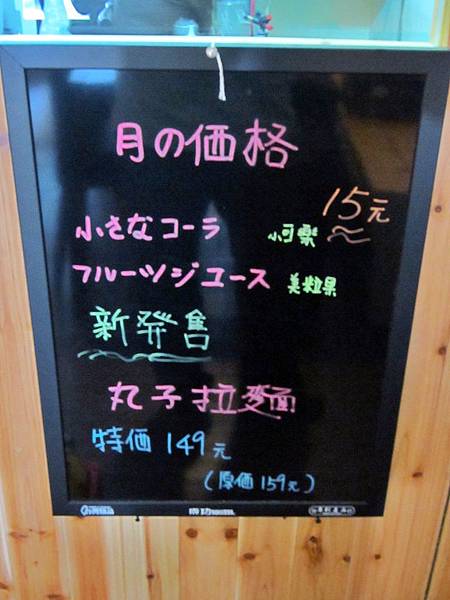 月の価格
15元
小さなコーラ 小可樂
フルーツジユース 美粒果
新発售
丸子拉麵
特価 149元
(原価 159元)